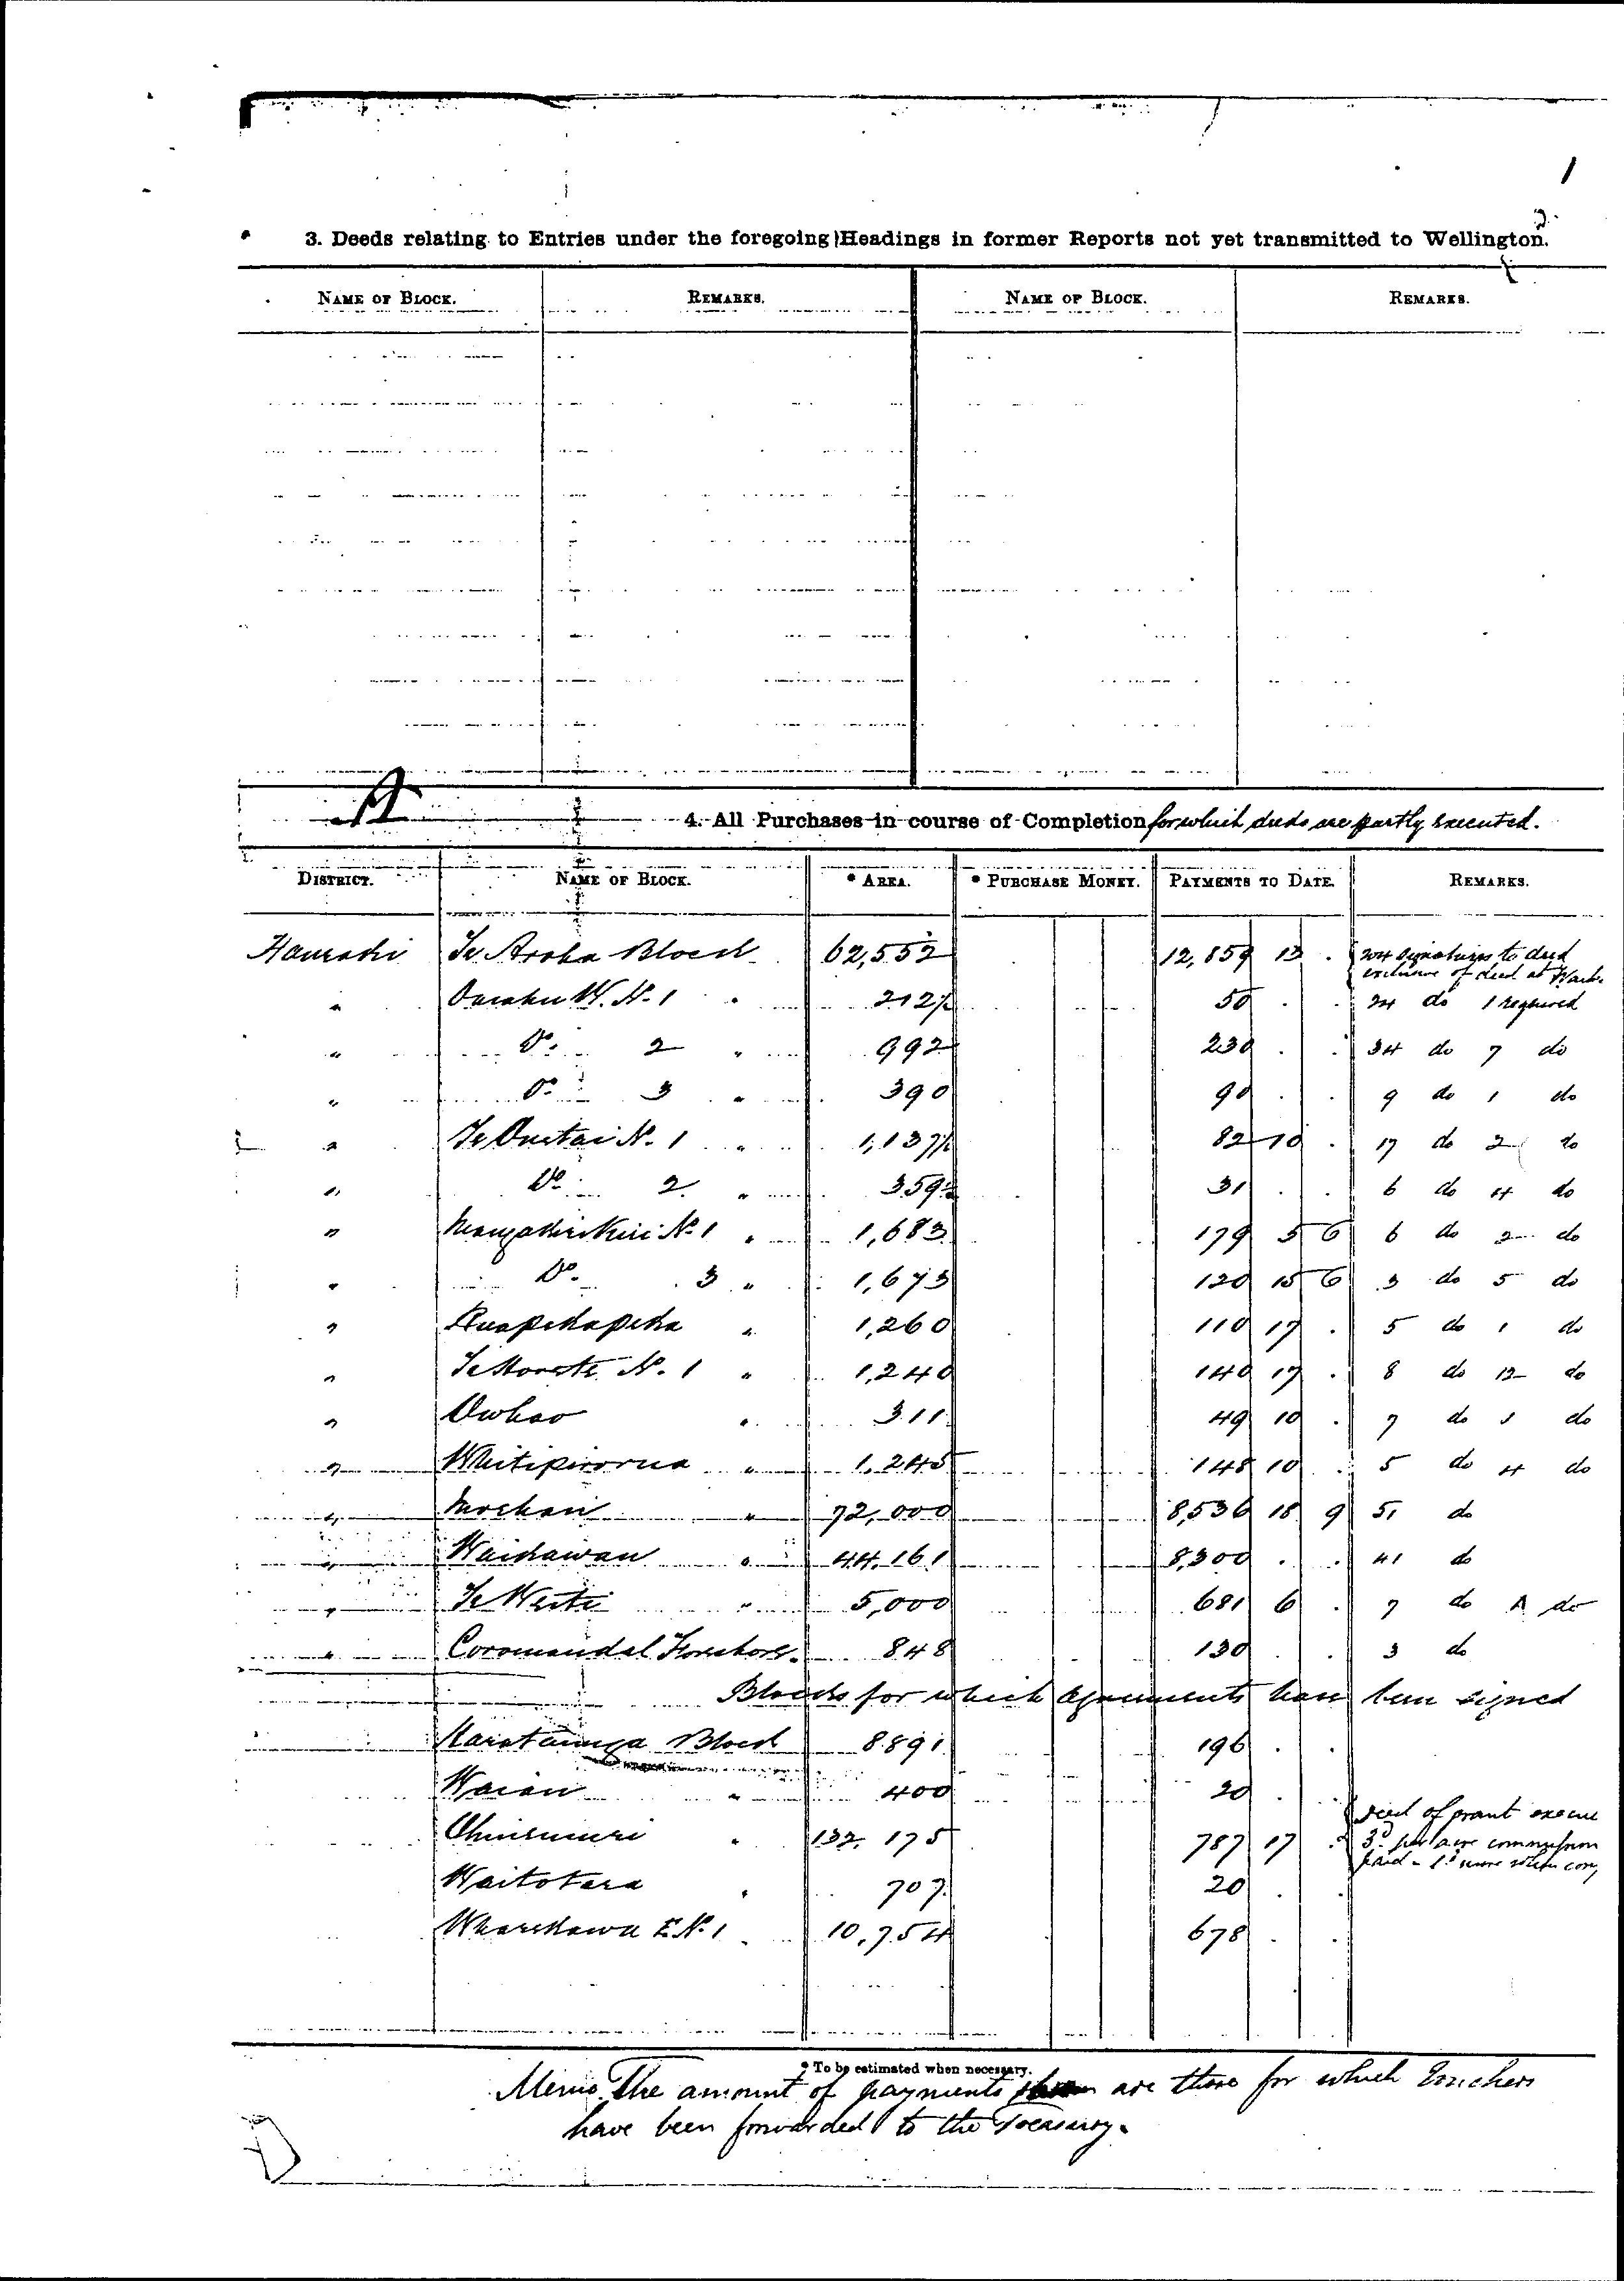 1
3. Deeds relating to Entries under the foregoing Headings in former Reports not yet transmitted to Wellington.
NAME OF BLOCK. REMARKS. NAME OF BLOCK. REMARKS.
4. All Purchases in course of Completion for which deeds are partly executed.
DISTRICT. NAME OF BLOCK. * AREA. * PURCHASE MONEY. PAYMENTS TO DATE. REMARKS.
Hauraki Te Aroha Block 62,552 12,859 13 . 204 signatures to deed
exclusive of deed at
" No. 1 " 212½ 50 . . 24 do 1 required
" Do. 2 " 992 230 . . 34 do 7 do
" Do. 3 " 390 90 . . 9 do 1 do
" No. 1 " 1,137½ 82 10 . 17 do 2 do
" Do. 2 " 359½ 31 . . 6 do 4 do
" Mangakirikiri No. 1 " 1,683 179 5 6 6 do 2 do
" Do. 3 " 1,673 120 15 6 3 do 5 do
" Ruapekapeka " 1,260 110 17 . 5 do 1 do
" No. 1 " 1,240 140 17 . 8 do 12 do
" Owhao " 311 49 10 . 7 do 1 do
" Whitipirorua " 1,245 148 10 . 5 do 4 do
" Moehau " 72,000 8,536 18 9 51 do
" Waikawau " 44,161 8,300 . . 41 do
" Te Weiti " 5,000 681 6 . 7 do A do
" Coromandel Foreshore 848 130 . . 3 do
Blocks for which agreements have been signed
Marataunga Block 8891 196 . .
Waiau " 400 20 .
deed of grant
Ohinemuri " 132,175 787 17 . 3d per acre commission
paid - 1d more when
Waitotara " 707 20 .
Wharekawa E. No. 1 10,754 678 . .
* To be estimated when necessary.
Memo, The amount of payments shown are those for which Vouchers
have been forwarded to the Treasury.